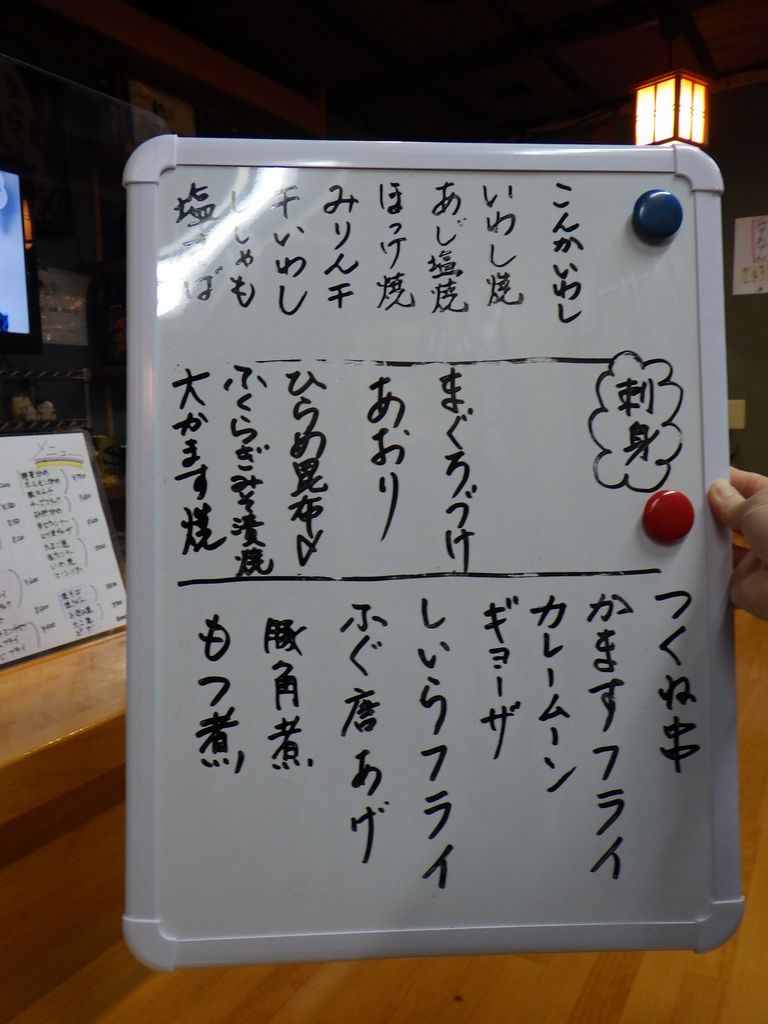 こんかいわし
いわし焼
あじ塩焼
ほっけ焼
みりん干
干いわし
ししゃも
塩さば
刺身
まぐろづけ
あおり
ひらめ昆布〆
ふくらぎみそ漬焼
大かます焼
つくね串
かますフライ
カレームーン
ギョーザ
しいらフライ
ふぐ唐あげ
豚角煮
もつ煮
メニュー